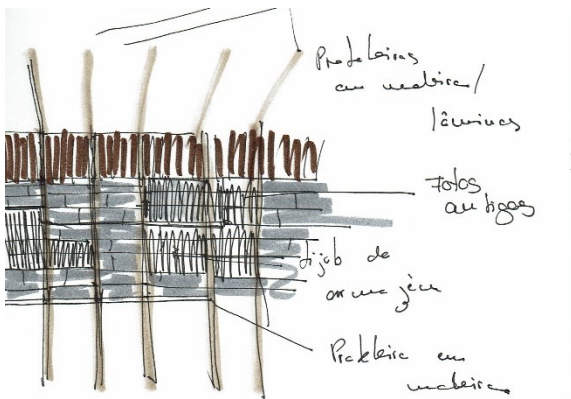 Prateleiras
em madeira/
lâminas
Fotos
antigas
tijolo do
armazém
Prateleira em
madeira